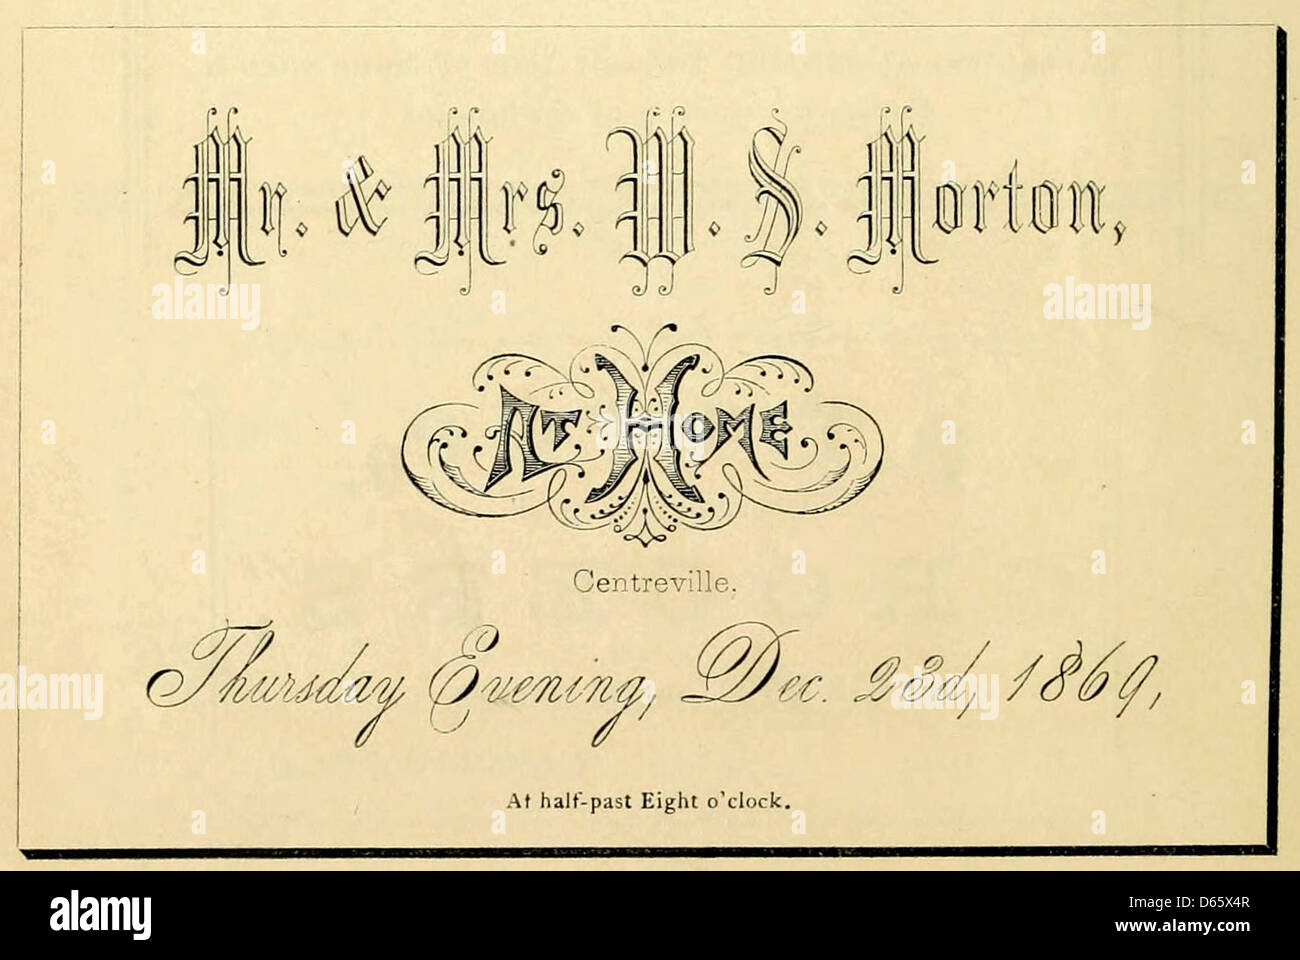 Mr. & Mrs. W. S. Morton,
At Home
Centreville.
Thursday Evening, Dec. 23d, 1869,
At half-past Eight o'clock.
alamy
Image ID: D65X4R
www.alamy.com